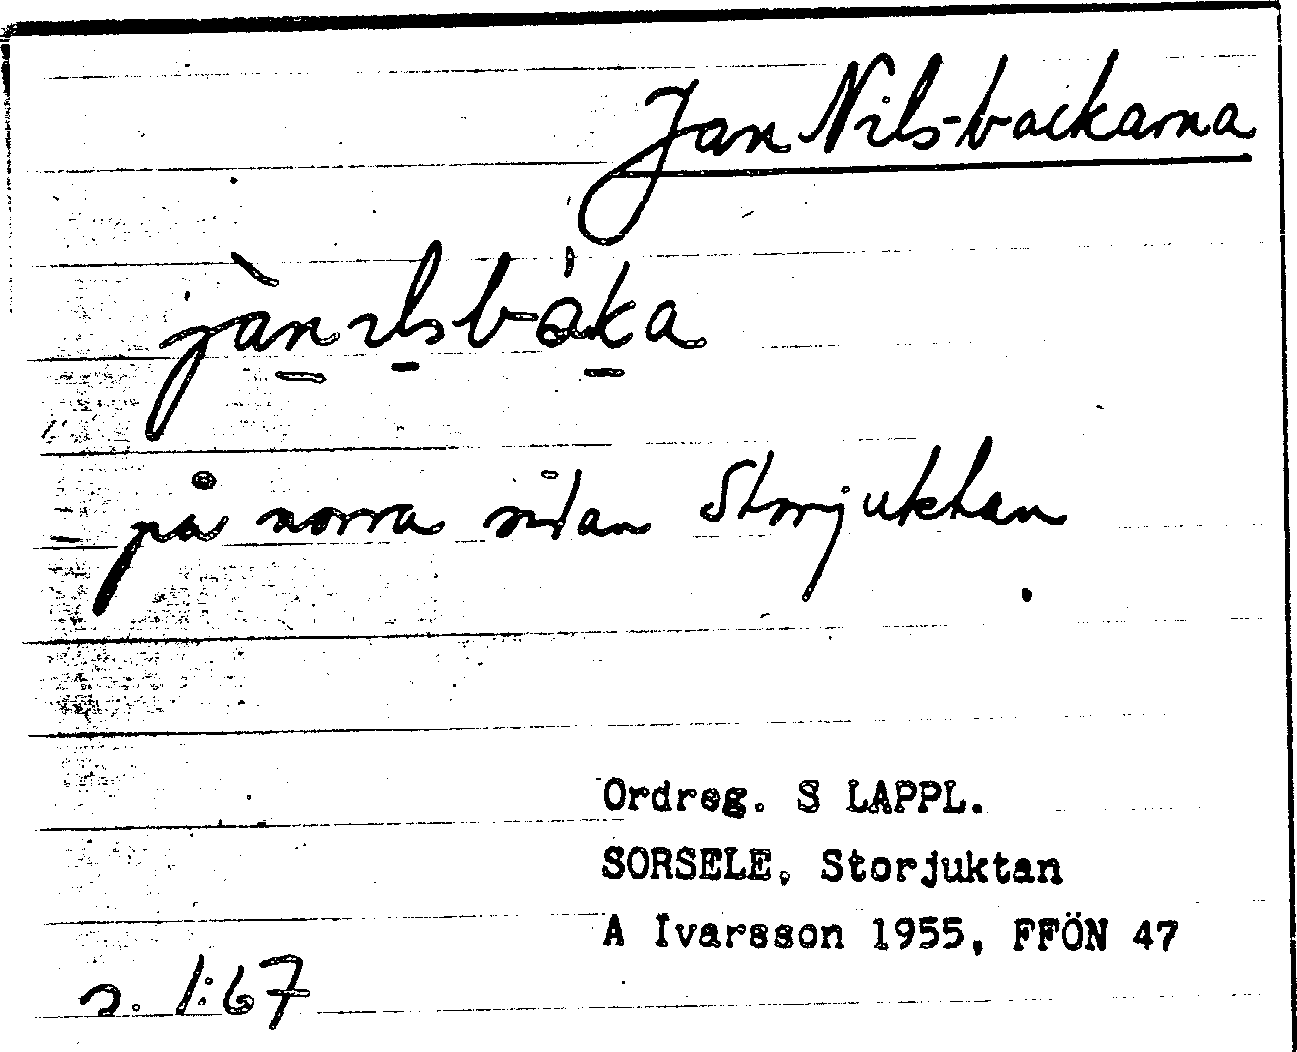 Jan Nils-backarna
jàn̲ıl̲sbák̲a
på norra sidan Storjuktan
Ordreg. S LAPPL.
SORSELE, Storjuktan
A Ivarsson 1955, FFÖN 47
s. 1:67